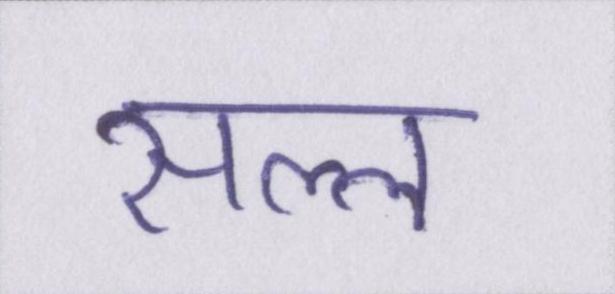 सल्ल